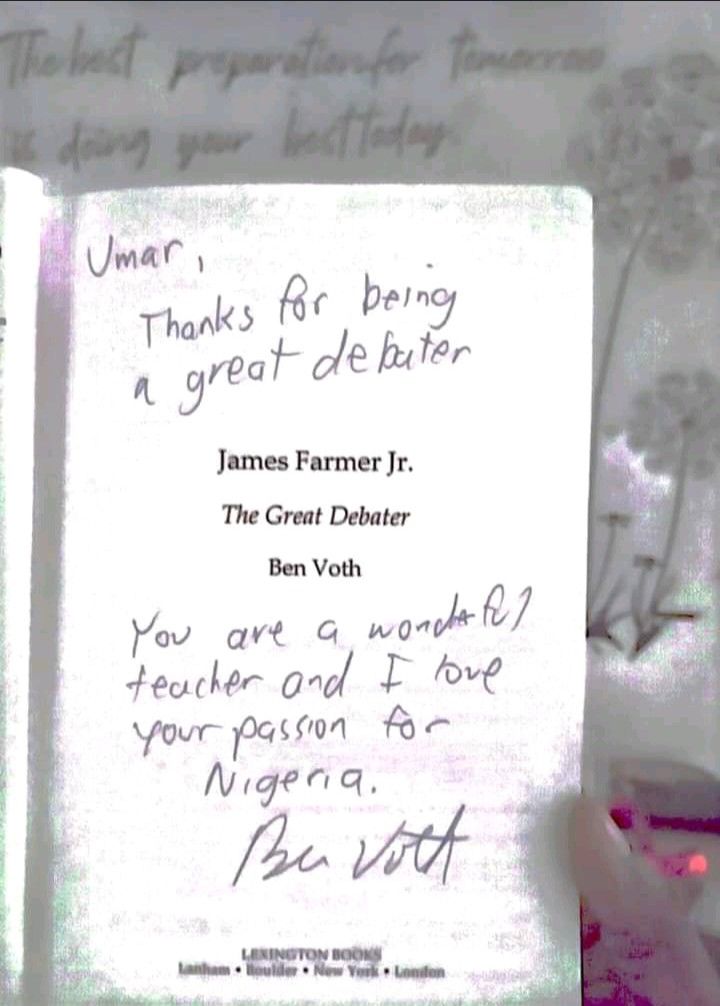 The best preparation for tomorrow
is doing your best today.
Umar,
Thanks for being
a great debater
James Farmer Jr.
The Great Debater
Ben Voth
You are a wonderful
teacher and I love
your passion for
Nigeria.
Ben Voth
LEXINGTON BOOKS
Lanham • Boulder • New York • London